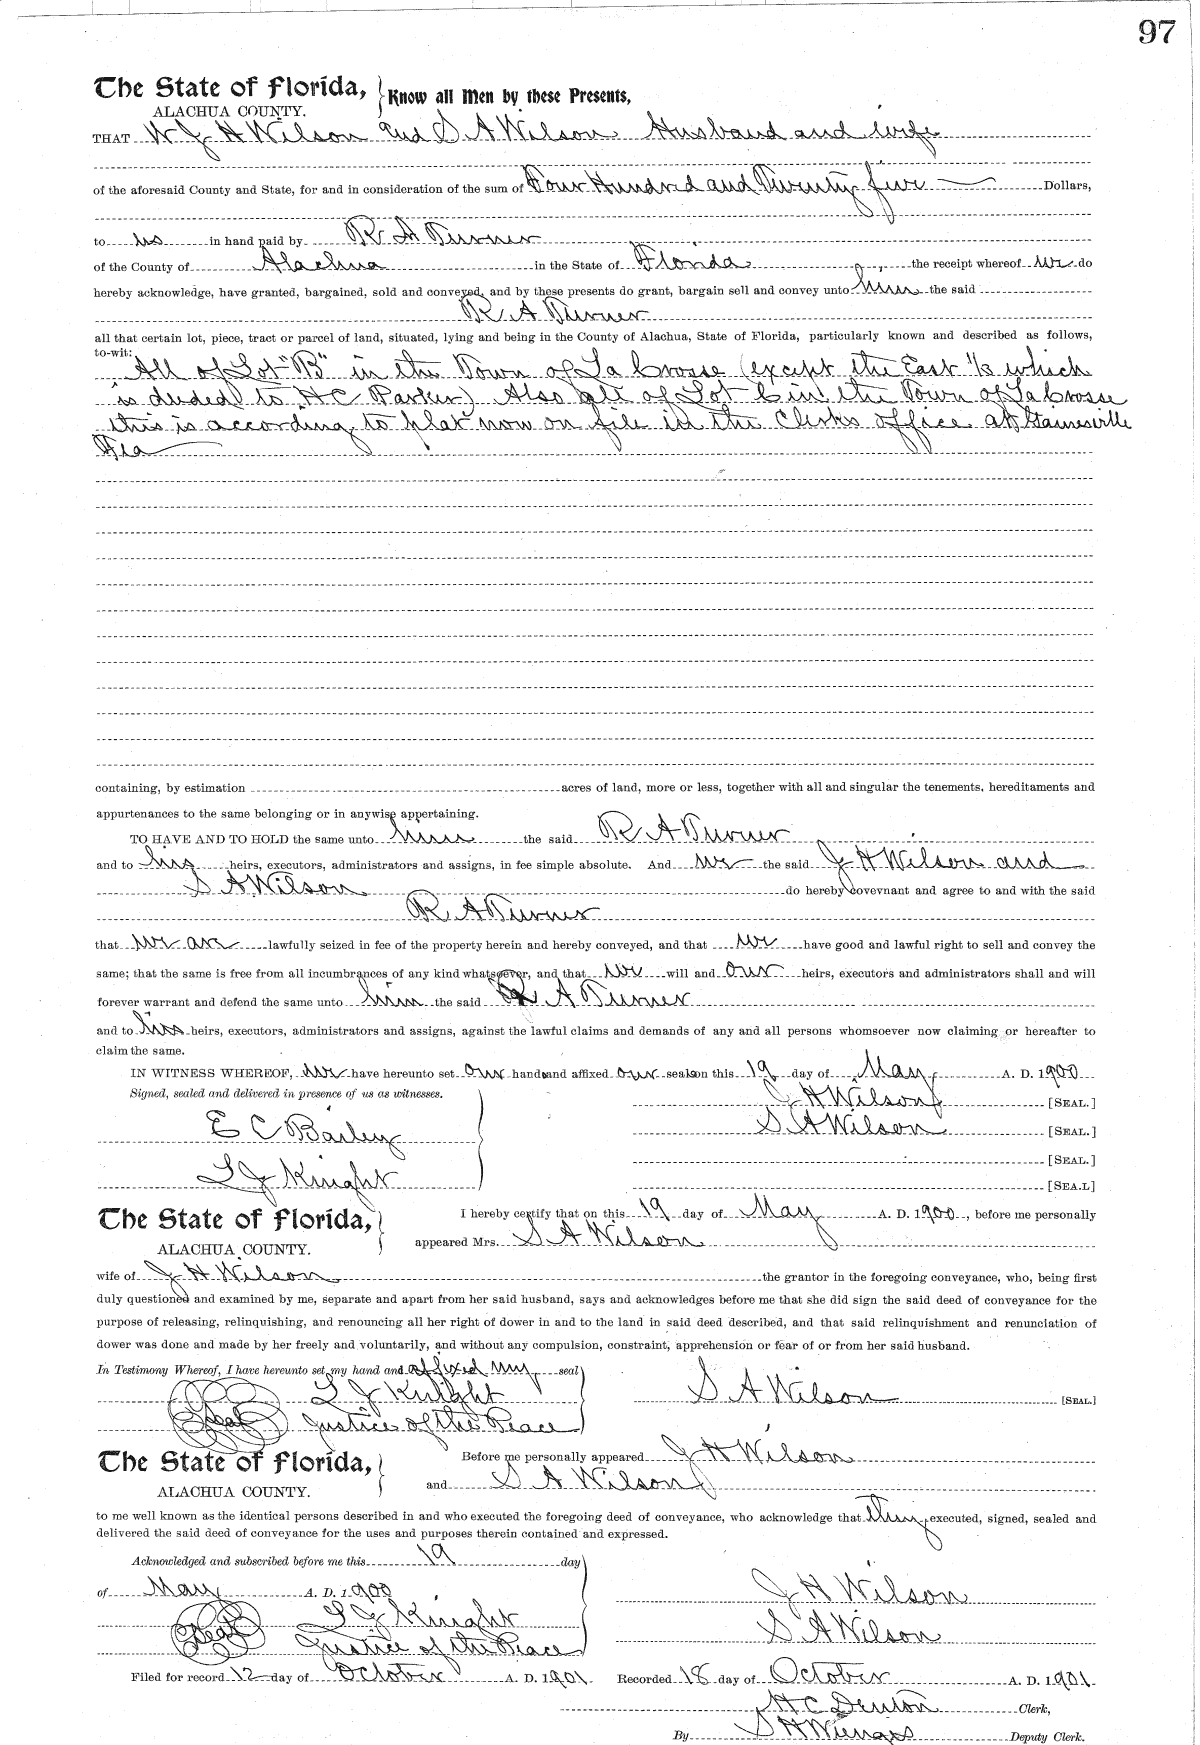 97
The State of Florida, Know all Men by these Presents,
ALACHUA COUNTY.
THAT W J H Wilson and S A Wilson Husband and wife
of the aforesaid County and State, for and in consideration of the sum of Four Hundred and Twenty five Dollars,
to us in hand paid by R A Turner
of the County of Alachua in the State of Florida, the receipt whereof we do
hereby acknowledge, have granted, bargained, sold and conveyed, and by these presents do grant, bargain sell and convey unto him the said
R A Turner
all that certain lot, piece, tract or parcel of land, situated, lying and being in the County of Alachua, State of Florida, particularly known and described as follows,
to-wit:
All of Lot "B" in the Town of La Crosse (except the East 1/3 which
is deeded to H C Parker) Also all of Lot C in the Town of La Crosse
this is according to plat now on file in the Clerks office at Gainesville
Fla
containing, by estimation acres of land, more or less, together with all and singular the tenements, hereditaments and
appurtenances to the same belonging or in anywise appertaining.
TO HAVE AND TO HOLD the same unto him the said R A Turner
and to his heirs, executors, administrators and assigns, in fee simple absolute. And we the said J H Wilson and
S A Wilson do hereby covevnant and agree to and with the said
R A Turner
that we are lawfully seized in fee of the property herein and hereby conveyed, and that we have good and lawful right to sell and convey the
same; that the same is free from all incumbrances of any kind whatsoever, and that we will and our heirs, executors and administrators shall and will
forever warrant and defend the same unto him the said R A Turner
and to his heirs, executors, administrators and assigns, against the lawful claims and demands of any and all persons whomsoever now claiming or hereafter to
claim the same.
IN WITNESS WHEREOF, we have hereunto set our hands and affixed our seals on this 19 day of May A. D. 1900
Signed, sealed and delivered in presence of us as witnesses. J H Wilson [SEAL.]
E C Bailey S A Wilson [SEAL.]
[SEAL.]
L J Knight [SEA.L]
The State of Florida, I hereby certify that on this 19 day of May A. D. 1900, before me personally
ALACHUA COUNTY. appeared Mrs. S A Wilson
wife of J H Wilson the grantor in the foregoing conveyance, who, being first
duly questioned and examined by me, separate and apart from her said husband, says and acknowledges before me that she did sign the said deed of conveyance for the
purpose of releasing, relinquishing, and renouncing all her right of dower in and to the land in said deed described, and that said relinquishment and renunciation of
dower was done and made by her freely and voluntarily, and without any compulsion, constraint, apprehension or fear of or from her said husband.
In Testimony Whereof, I have hereunto set my hand and affixed my seal
L J Knight S A Wilson [SEAL.]
Seal Justice of the Peace
The State of Florida, Before me personally appeared J H Wilson
ALACHUA COUNTY. and S A Wilson
to me well known as the identical persons described in and who executed the foregoing deed of conveyance, who acknowledge that they executed, signed, sealed and
delivered the said deed of conveyance for the uses and purposes therein contained and expressed.
Acknowledged and subscribed before me this 19 day
of May A. D. 1900 J H Wilson
L J Knight S A Wilson
Seal Justice of the Peace
Filed for record 12 day of October A. D. 1901 Recorded 18 day of October A. D. 1901
H C Denton Clerk,
By S H Wienges Deputy Clerk.